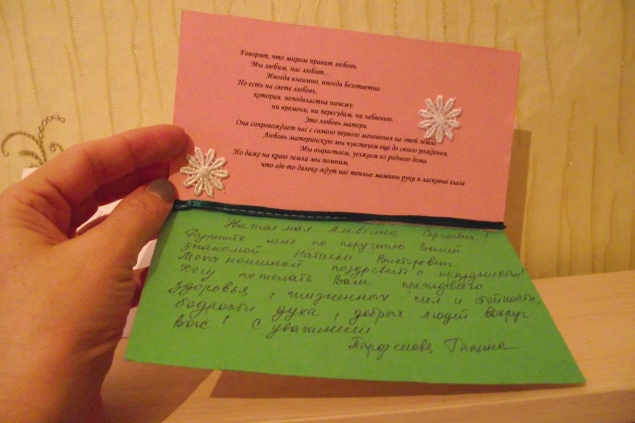 Говорят, что миром правит любовь.
Мы любим, нас любят...
Иногда взаимно, иногда безответно.
Но есть на свете любовь,
которая неподвластна ничему:
ни времени, ни пересудам, ни забвению.
Это любовь матери.
Она сопровождает нас с самого первого мгновения на этой земле.
Любовь материнскую мы чувствуем еще до своего рождения.
Мы вырастаем, уезжаем из родного дома.
Но даже на краю земли мы помним,
что где-то далеко ждут нас теплые мамины руки и ласковые глаза
Сергеевна!
мне по поручению Вашей
знакомой Натальи Викторовны
поздравить с праздником!
Хочу пожелать Вам прежде всего
здоровья, жизненных сил и стойкости,
бодрости духа, добрых людей вокруг
Вас! С уважением
Галина